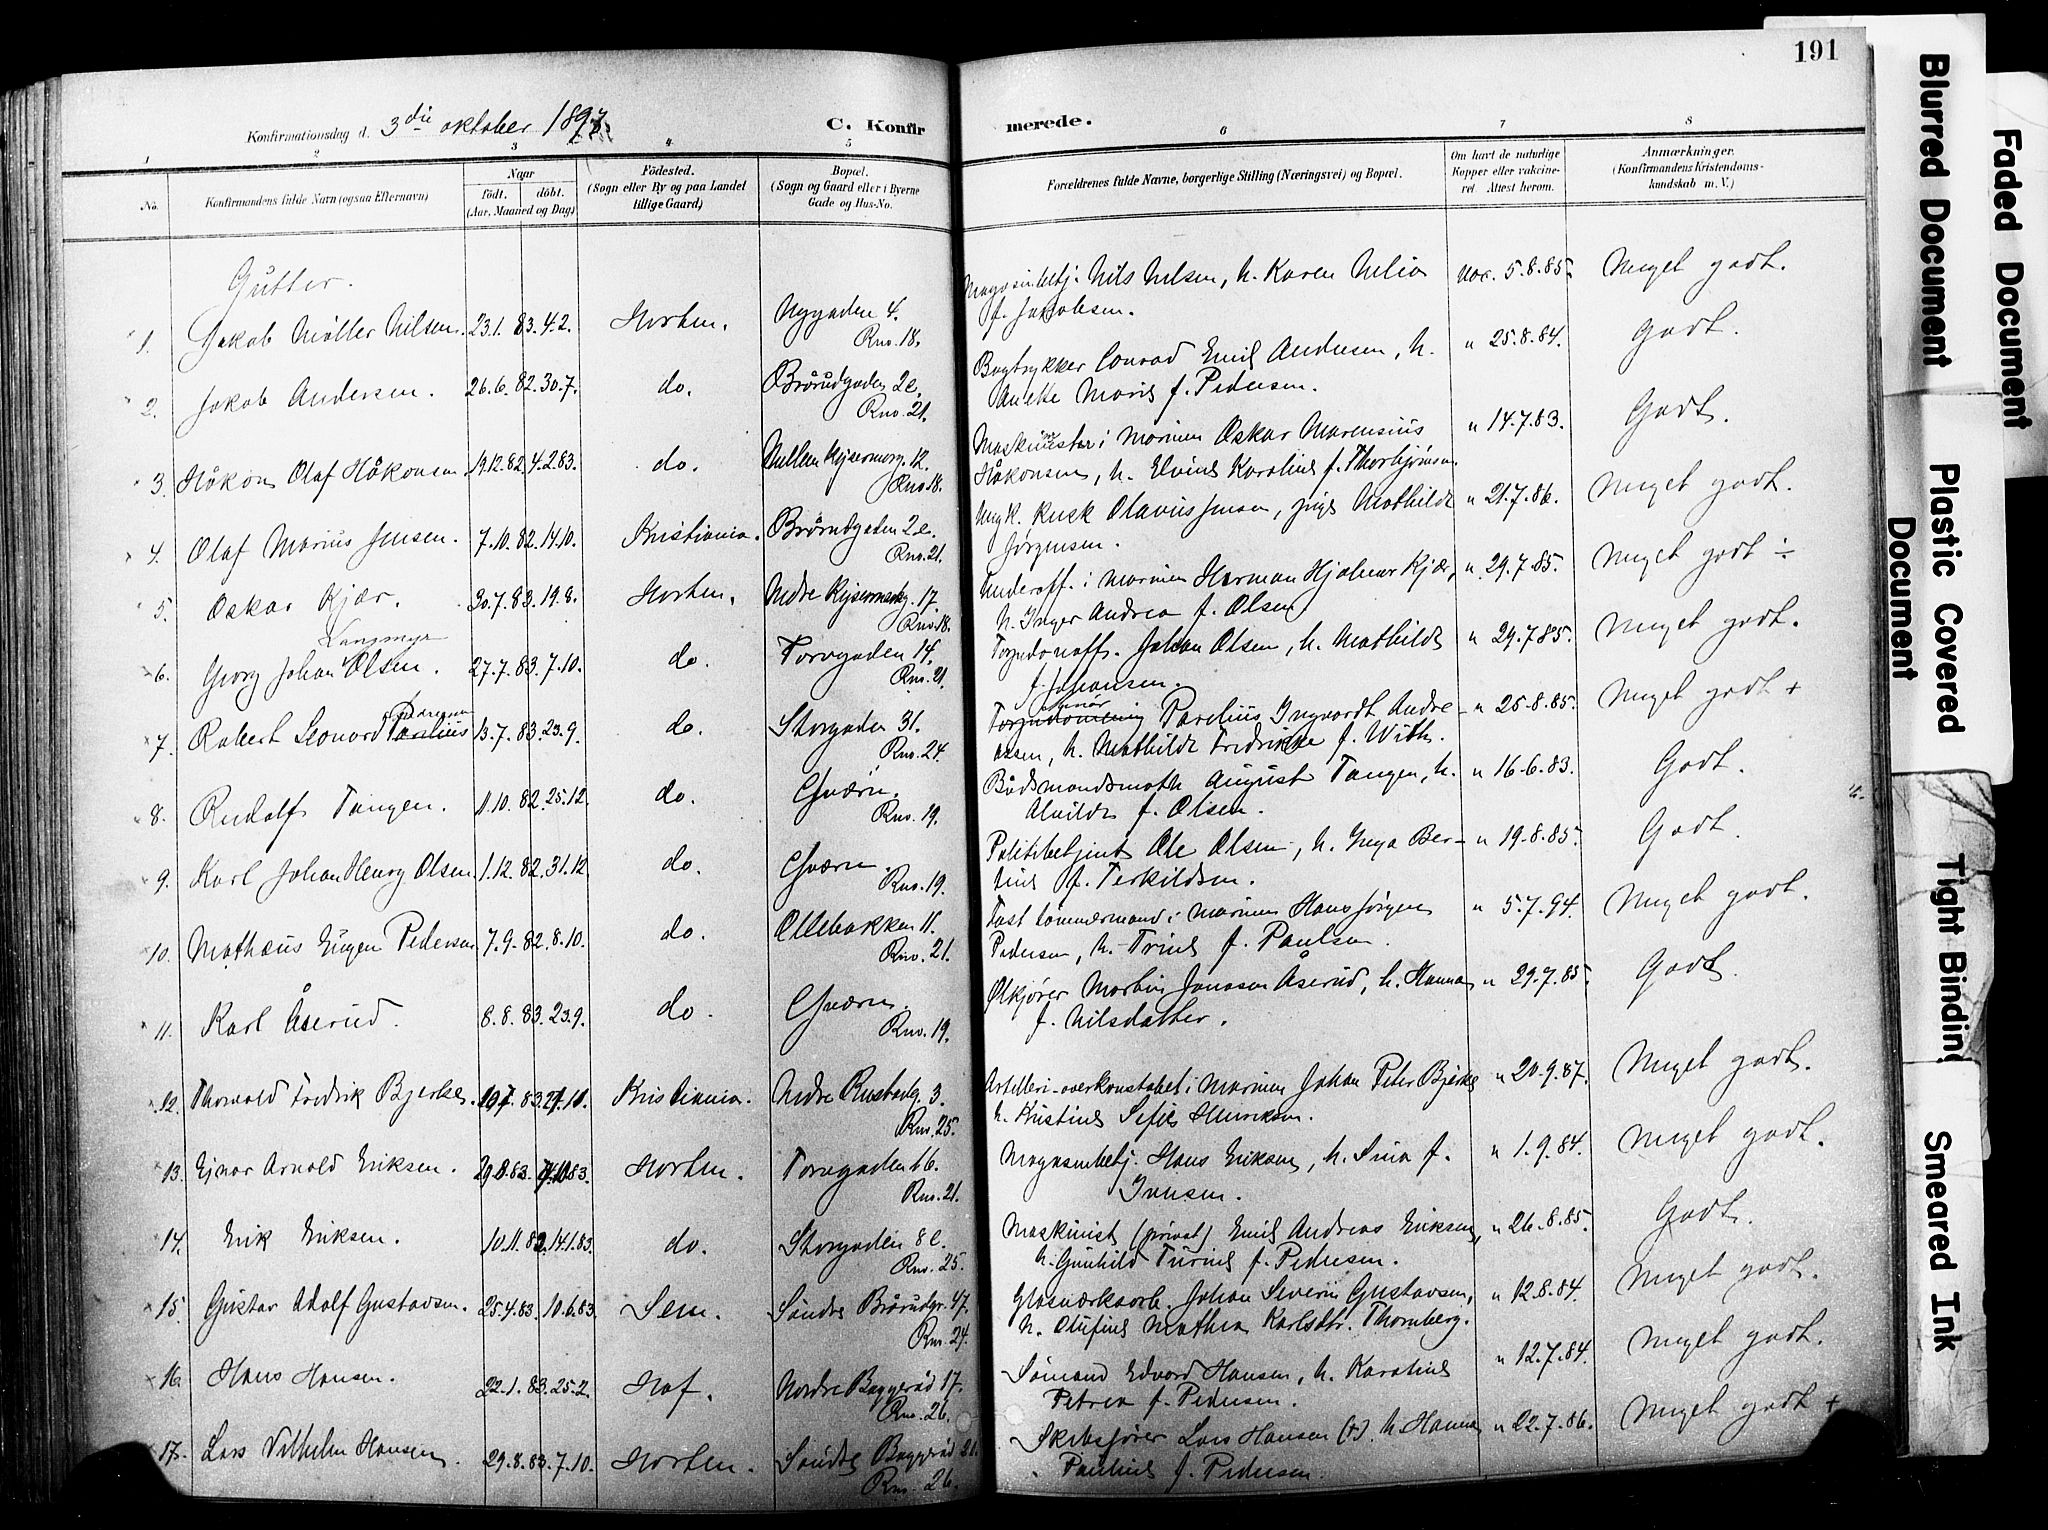 191
Konfirmationsdag d. 3die oktober 1897.
C. Konfirmerede.
1 2 3 4 5 6 7 8
No.
Konfirmandens fulde Navn (ogsaa Efternavn)
Naar
født. døbt.
(Aar, Maaned og Dag)
Fødested.
(Sogn eller By og paa Landet
tillige Gaard)
Bopæl.
(Sogn og Gaard eller i Byerne
Gade og Hus-No.
Forældrenes fulde Navne, borgerlige Stilling (Næringsvei) og Bopæl.
Om havt de naturlige
Kopper eller vakcine-
ret. Attest herom.
Anmærkninger.
(Konfirmandens Kristendoms-
kundskab m. V.)
Gutter.
1. Jakob Möller Nilsen. 23.1.83. 4.2. Horten. Nygaden 4. Rno. 18. Magasinbetj. Nils Nilsen, h. Karen Nelia vac. 5.8.85. Meget godt.
f. Jakobsen.
2. Jakob Andersen. 26.6.82. 30.7. do. Brårudgaden 2e. Rno. 21. Bogtrykker Conrad Emil Andersen, h. " 25.8.84. Godt.
Anette Marie f. Pedersen.
3. Håkon Olaf Håkonsen 19.12.82. 4.2.83. do. Mellem Kjeserneg. 12. Rno. 18. Maskinmester i marinen Oskar Marensius " 14.7.83. Godt.
Håkonsen, h. Elvine Karoline f. Thorbjörnsen.
4. Olaf Marius Jensen. 7.10.82. 14.10. Kristiania. Brårudgaden 2e. Rno. 21. Ungk. kusk Olavus Jensen, pige Mathilde " 21.7.86. Meget godt.
Jörgensen.
5. Oskar Kjær. 30.7.83. 19.8. Horten. Nedre Kjeserneg. 17. Rno. 18. Underoff. i marinen Herman Hjalmar Kjær, " 29.7.85. Meget godt ÷
h. Inger Andrea f. Olsen
Langmyr
6. Georg Johan Olsen. 27.7.83. 7.10. do. Torvgaden 14. Rno. 21. Torpedounoff. Johan Olsen, h. Mathilde " 29.7.85. Meget godt.
f. Johansen.
7. Robert Leonard Parelius 13.7.83. 23.9. do. Storgaden 31. Rno. 24. Parelius Ingvardt Andre- " 25.8.85. Meget godt +
assen, h. Mathilde Fredrikke f. With.
8. Rudolf Tangen. 11.10.82. 25.12. do. Gværn. Rno. 19. Bådsmandsmath August Tangen, h. " 16.6.83. Godt.
Alvilde f. Olsen.
9. Karl Johan Henry Olsen. 1.12.82. 31.12 do. Gværn. Rno. 19. Politibetjent Ole Olsen, h. Inga Ber- " 19.8.85. Godt.
tine f. Terkildsen.
10. Mathæus Eugen Pedersen 7.9.82. 8.10. do. Ollebakken 11. Rno. 21. Fast tömmermand i marinen Hans Jörgen " 5.7.94. Meget godt.
Pedersen, h. Trine f. Paulsen.
11. Karl Åserud. 8.8.83. 23.9. do. Gværn. Rno. 19. Ölkjörer Martin Jonasen Åserud, h. Hanna " 29.7.85. Godt.
f. Nilsdatter.
12. Thorvald Fredrik Bjerke. Kristiania. Nedre Rustadg. 3. Rno. 25. Artilleri-overkonstabel i marinen Johan Peter Bjerke " 20.9.87. Meget godt.
h. Kristine Sofie Henriksen.
13. Ejnar Arnold Eriksen. 29.8.83. Horten. Torvgaden 16. Rno. 21. Magasinbetj. Hans Eriksen, h. Sina f. " 1.9.84. Meget godt.
Iversen.
14. Erik Eriksen. 10.11.82. 14.1.83. do. Storgaden 8e. Rno. 25. Maskinist (privat) Emil Andreas Eriksen, " 26.8.85. Godt.
h. Gunhild Turine f. Pedersen.
15. Gustav Adolf Gustavsen. 25.4.83. 10.6.83. Sem. Söndre Brårudgt. 47. Rno. 24. Glasværksarb. Johan Severin Gustavsen, " 12.8.84. Meget godt.
h. Olufine Mathea Karlsdtr. Thornberg.
16. Hans Hansen. 22.1.83. 25.2. Hof. Nordre Baggeröd 17. Rno. 26. Sömand Edvard Hansen, h. Karoline " 12.7.84. Meget godt.
Petrea f. Pedersen.
17. Lars Vilhelm Hansen. 29.8.83. 7.10. Horten. Söndre Baggeröd 21. Rno. 26. Skibsförer Lars Hansen (+). h. Hanna " 22.7.86. Meget godt +
Pauline f. Pedersen.
Faded Document
Blurred Document
Plastic Covered Document
Tight Binding
Smeared Ink